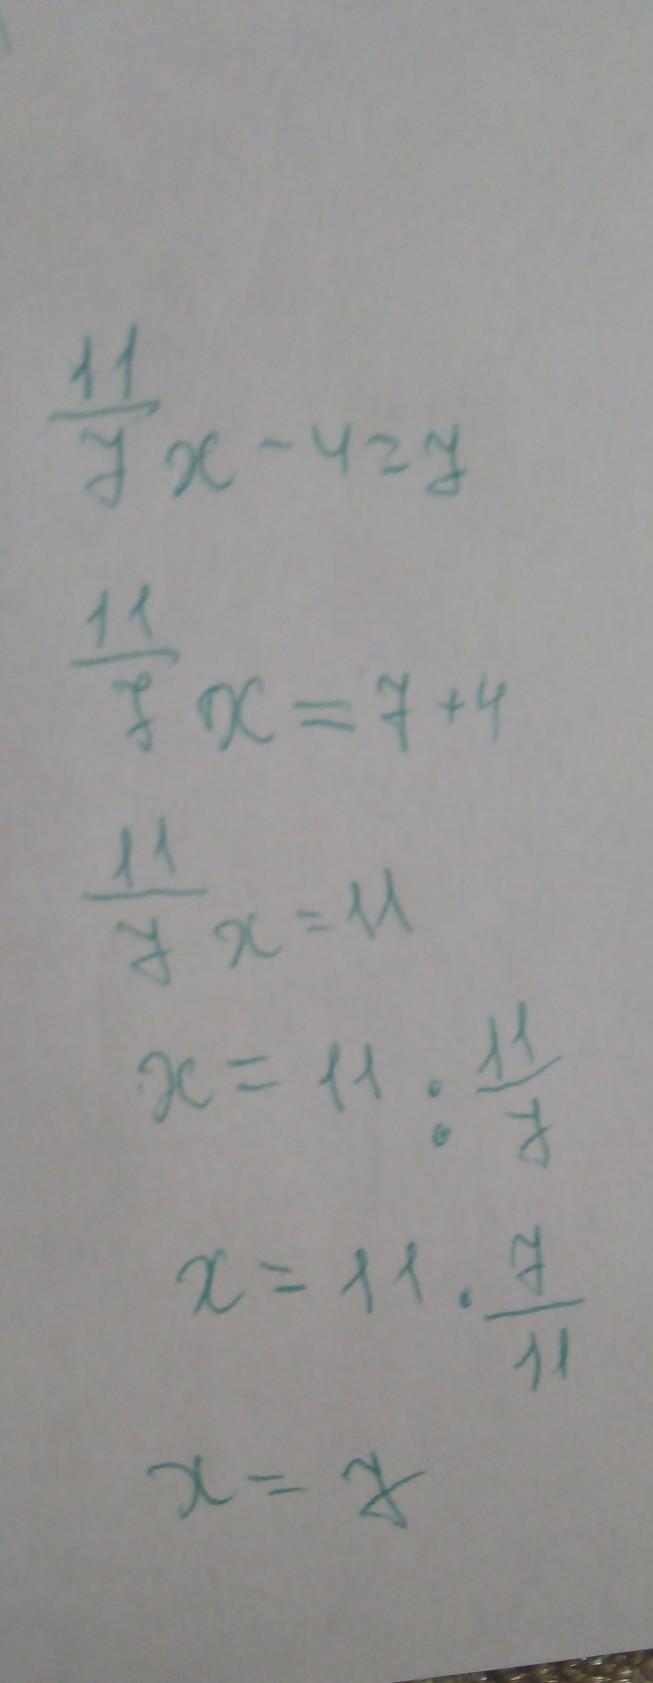 11/7 x - 4 = 7
11/7 x = 7 + 4
11/7 x = 11
x = 11 : 11/7
x = 11 · 7/11
x = 7